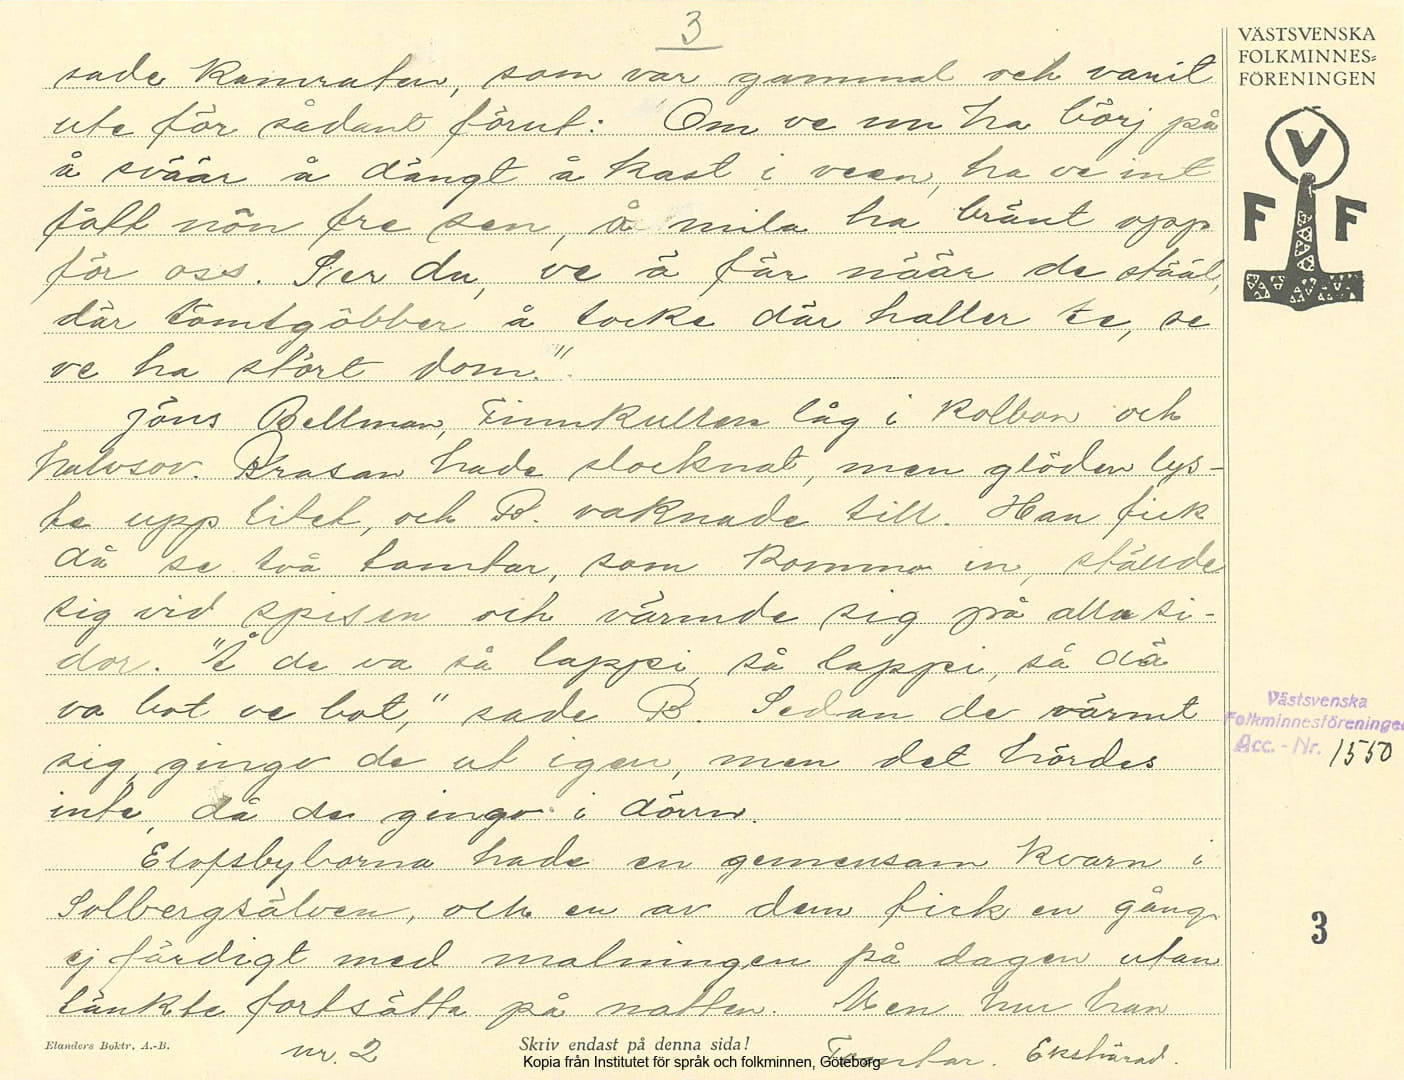 3
sade kamraten, som var gammal och varit
ute för sådant förut: "Om ve nu ha börj på
å sväär å dängt å kast i veen, ha ve int
fått nön fre sen, å mila ha bränt opp
för oss. Ser du, ve ä för näär de stääl,
där tomtgöbber å tocke där haller te, se
ve ha stört dom."
Jöns Bellman, Finnkullen låg i kolbon och
halvsov. Brasan hade slocknat, men glöden lys-
te upp litet, och B. vaknade till. Han fick
då se två tomtar, som kommo in, ställde
sig vid spisen och värmde sig på alla si-
dor. "Å de va så lappi, så lappi, så dä
va bot ve bot," sade B. Sedan de värmt
sig, gingo de ut igen, men det hördes
inte, då de gingo i dörrn.
Elofsbyborna hade en gemensam kvarn i
Solbergsälven, och en av dem fick en gång
ej färdigt med malningen på dagen utan
tänkte fortsätta på natten. Men hur han
Elanders Boktr. A.-B.
nr. 2
Skriv endast på denna sida!
Tomtar. Ekshärad.
Kopia från Institutet för språk och folkminnen, Göteborg
VÄSTSVENSKA
FOLKMINNES=
FÖRENINGEN
V
F F
Västsvenska
Folkminnesföreningen
Acc. - Nr. 1550
3